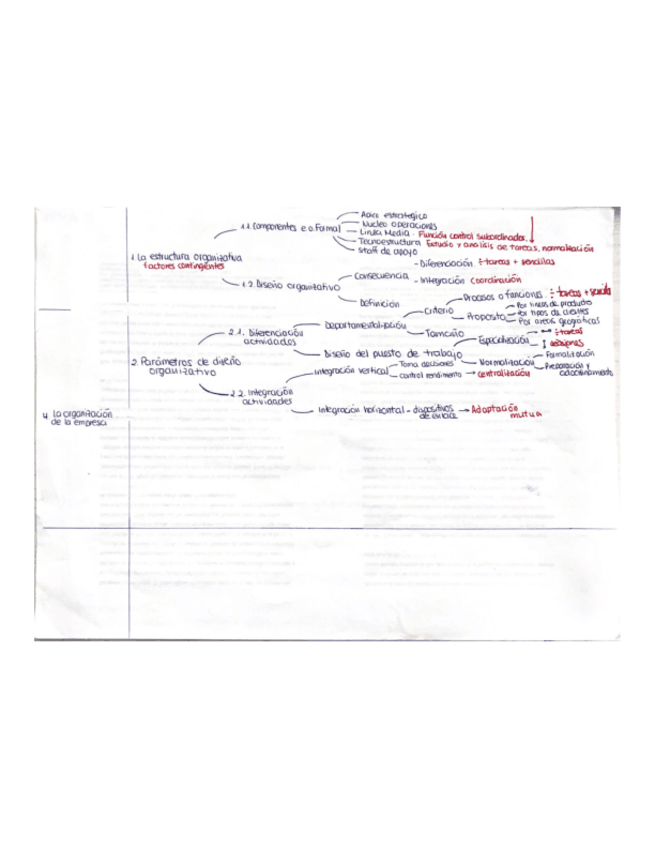 Apice estratégico
1.1. Componentes e.o. Formal
Nucleo operaciones
Linea Media · Función control subordinados.
Tecnoestructura Estudio y analisis de tareas, normalización
Staff de apoyo
1. La estructura organizativa
factores contingentes
- Diferenciación ÷ tareas + sencillas
1.2. Diseño organizativo
Consecuencia
- Integración Coordinación
Definición
Criterio
Procesos o funciones. ÷ tareas +
Proposito
Por lineas de producto
Por tipos de clientes
Por areas geográficas
2. Parámetros de diseño
organizativo
2.1. Diferenciación
actividades
Departamentalización
Tamaño
Diseño del puesto de trabajo
Especialización
↔ ÷ tareas
Normalización
Formalización
Preparación y
adoctrinamiento
2.2. Integración
actividades
Integración vertical
Toma decisiones
control rendimiento → centralización
Integración horizontal - dispositivos
de enlace
→ Adaptación
mutua
4. La organización
de la empresa